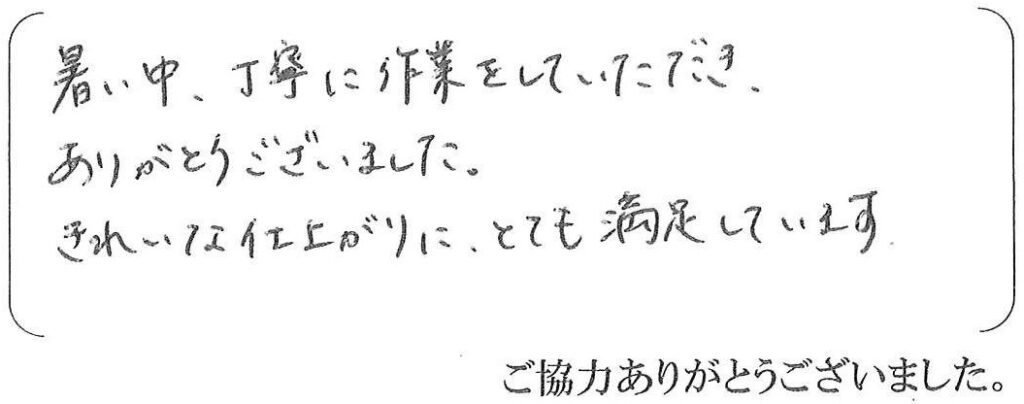 暑い中、丁寧に作業をしていただき、
ありがとうございました。
きれいな仕上がりに、とても満足しています。
ご協力ありがとうございました。